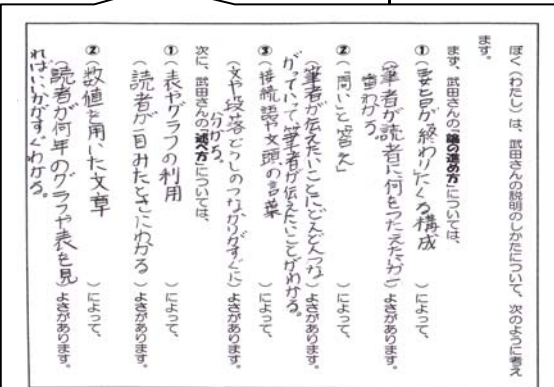 ぼく(わたし)は、武田さんの説明のしかたについて、次のように考え
ます。
まず、武田さんの「論の進め方」については、
①(要旨が終わりにくる構成)によって、
(筆者が読者に何をつたえたいか
わかる。)よさがあります。
②(「問いと答え」)によって、
(筆者が伝えたいことにどんどんつな
がっていって、筆者が伝えたいことがわかる。)よさがあります。
③(接続語や文頭の言葉)によって、
(文や段落どうしのつながりがすぐに
分かる。)よさがあります。
次に、武田さんの「述べ方」については、
①(表やグラフの利用)によって、
(読者が一目みたときにわかる)よさがあります。
②(数値を用いた文章)によって、
(読者が何年のグラフや表を見
ればいいかがすぐわかる。)よさがあります。